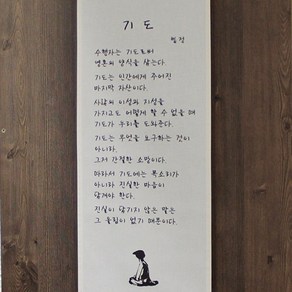 기도
법정
수행자는 기도로써
영혼의 양식을 삼는다.
기도는 인간에게 주어진
마지막 자산이다.
사람의 이성과 지성을
가지고도 어떻게 할 수 없을 때
기도가 우리를 도와준다.
기도는 무엇을 요구하는 것이
아니라,
그저 간절한 소망이다.
따라서 기도에는 목소리가
아니라 진실한 마음이
담겨야 한다.
진실이 담기지 않은 말은
그 울림이 없기 때문이다.